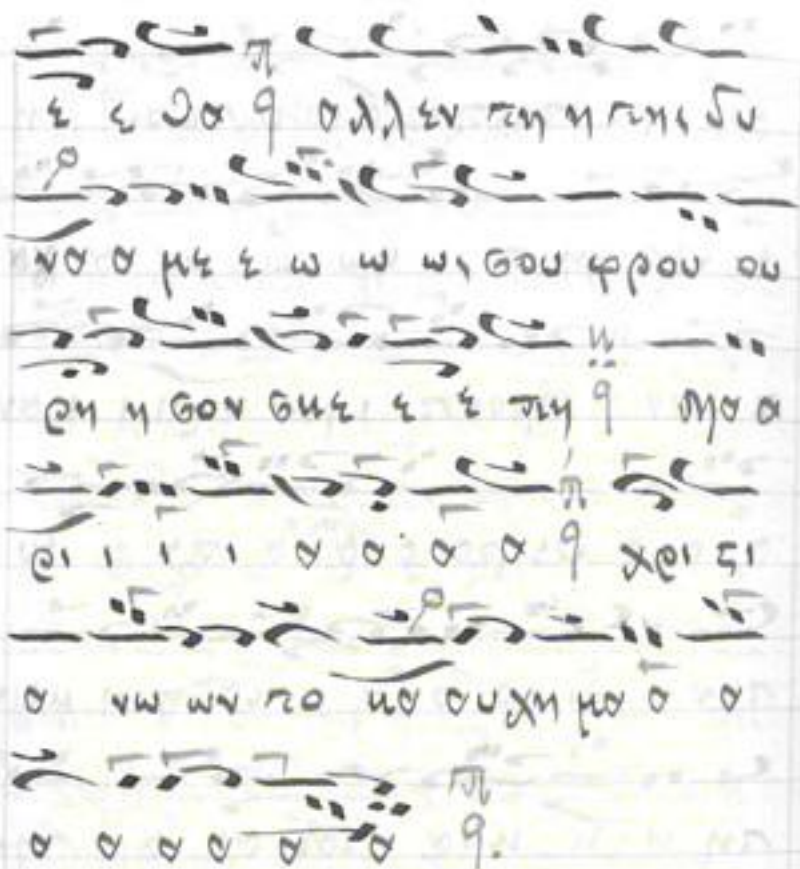 ε ε υα αλλ εν τη η της δυ
να α με ε ω ω ω, σου φρου ου
ρη η σον σης ε ε πη Μα α
ρι ι ι ι α α α α Χρι ϛι
α νω ων το κα αυχη μα α α
α α α α α α